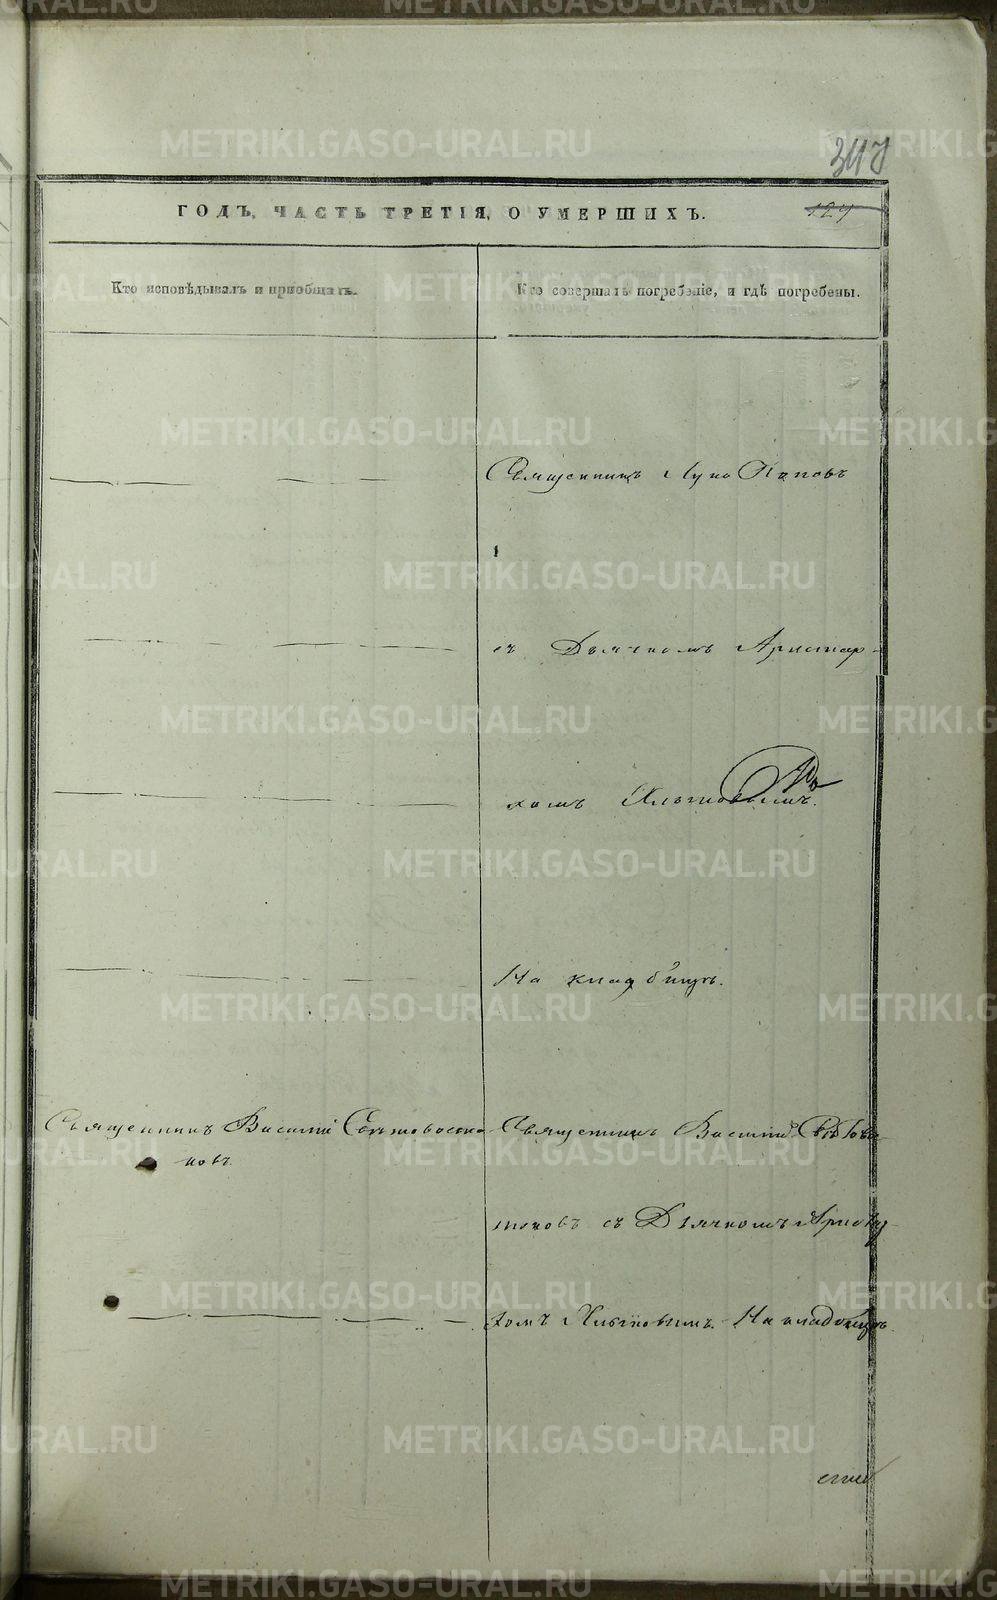 METRIKI.GASO-URAL.RU
347
ГОДЪ, ЧАСТЬ ТРЕТІЯ, О УМЕРШИХЪ.
124
Кто исповѣдывалъ и пріобщалъ.
Кто совершалъ погребеніе, и гдѣ погребены.
Священникъ Лука Поповъ
съ Дьячкомъ Аристар-
хомъ
На кладбищѣ.
Священникъ Василий
новъ.
Священникъ Василий
новъ съ Дьячкомъ
хомъ На кладбищѣ